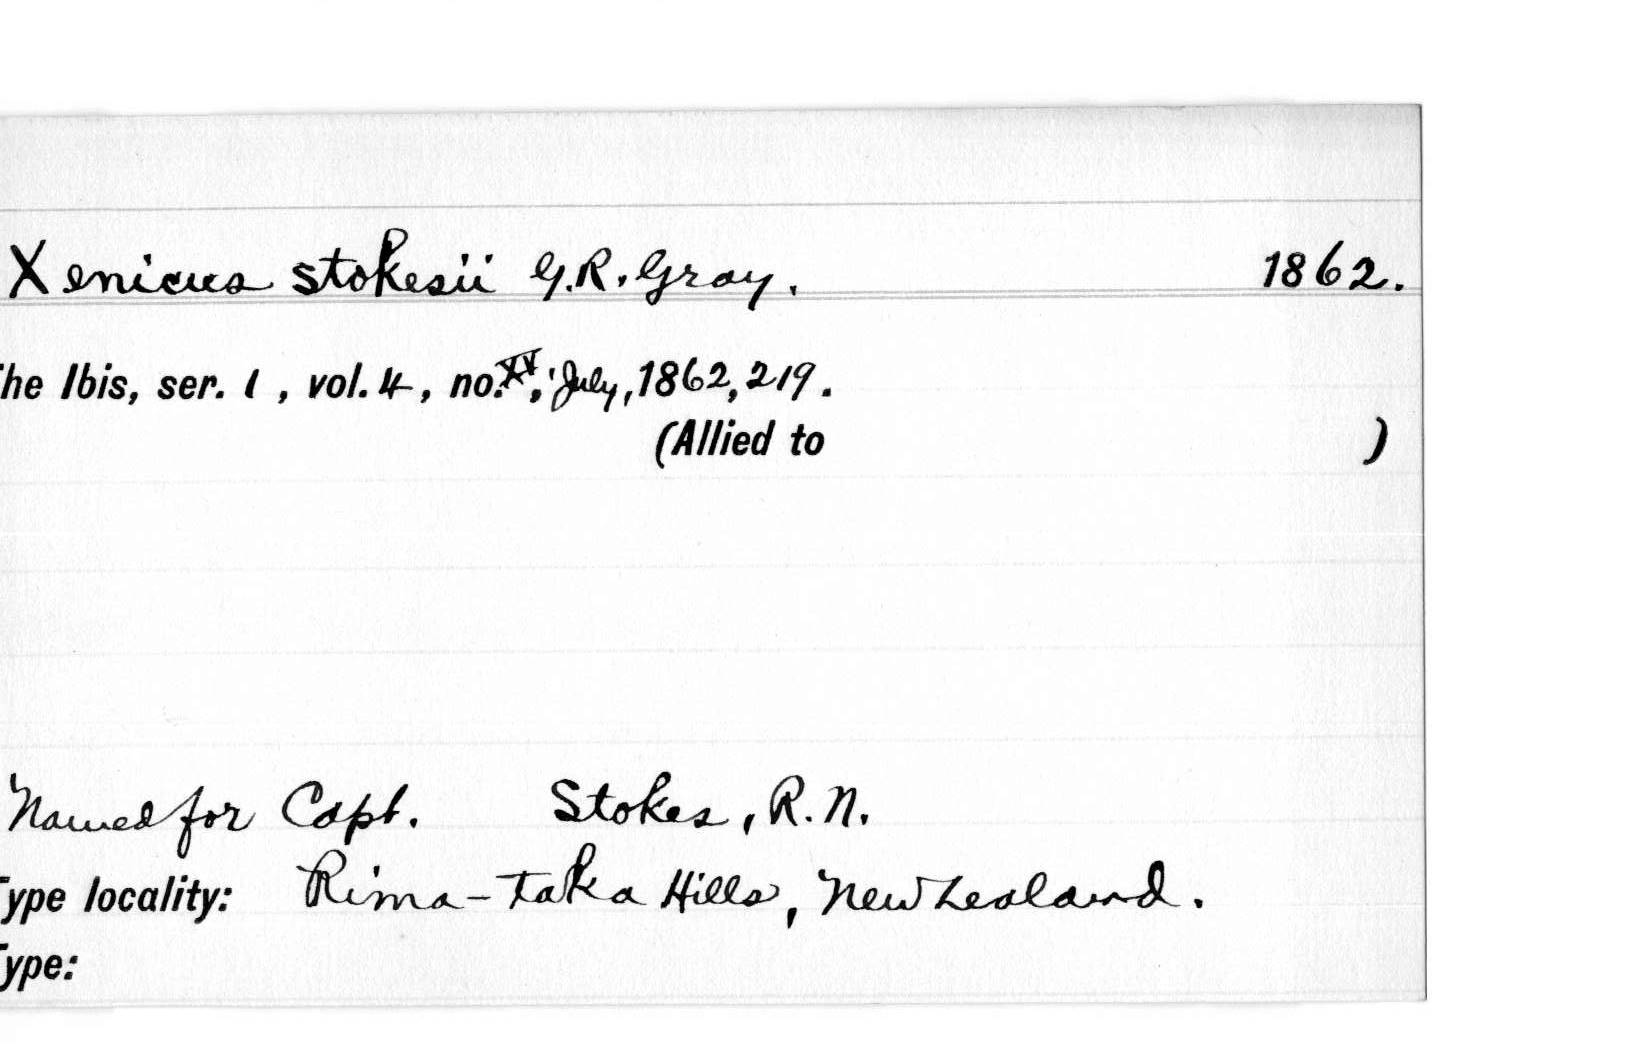 Xenicus stokesii G.R. Gray. 1862.
he Ibis, ser. 1, vol. 4, no. XV, July, 1862, 219.
(Allied to )
Named for Capt. Stokes, R.N.
Type locality: Rima-taka Hills, New Zealand.
Type: